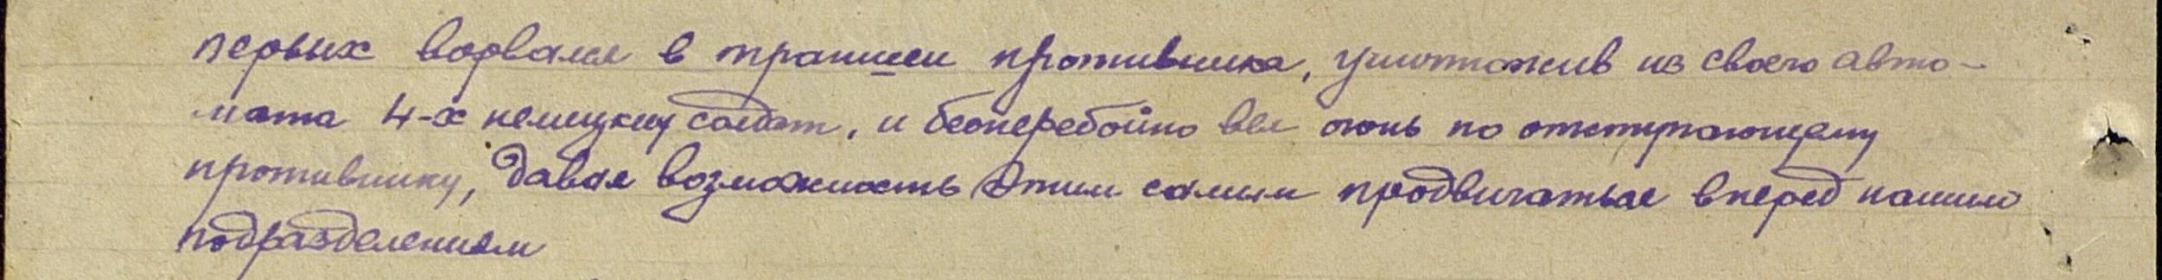 первых ворвался в траншеи противника, уничтожив из своего авто-
мата 4-х немецких солдат, и бесперебойно вел огонь по отступающему
противнику, давая возможность этим самым продвигаться вперед нашим
подразделениям